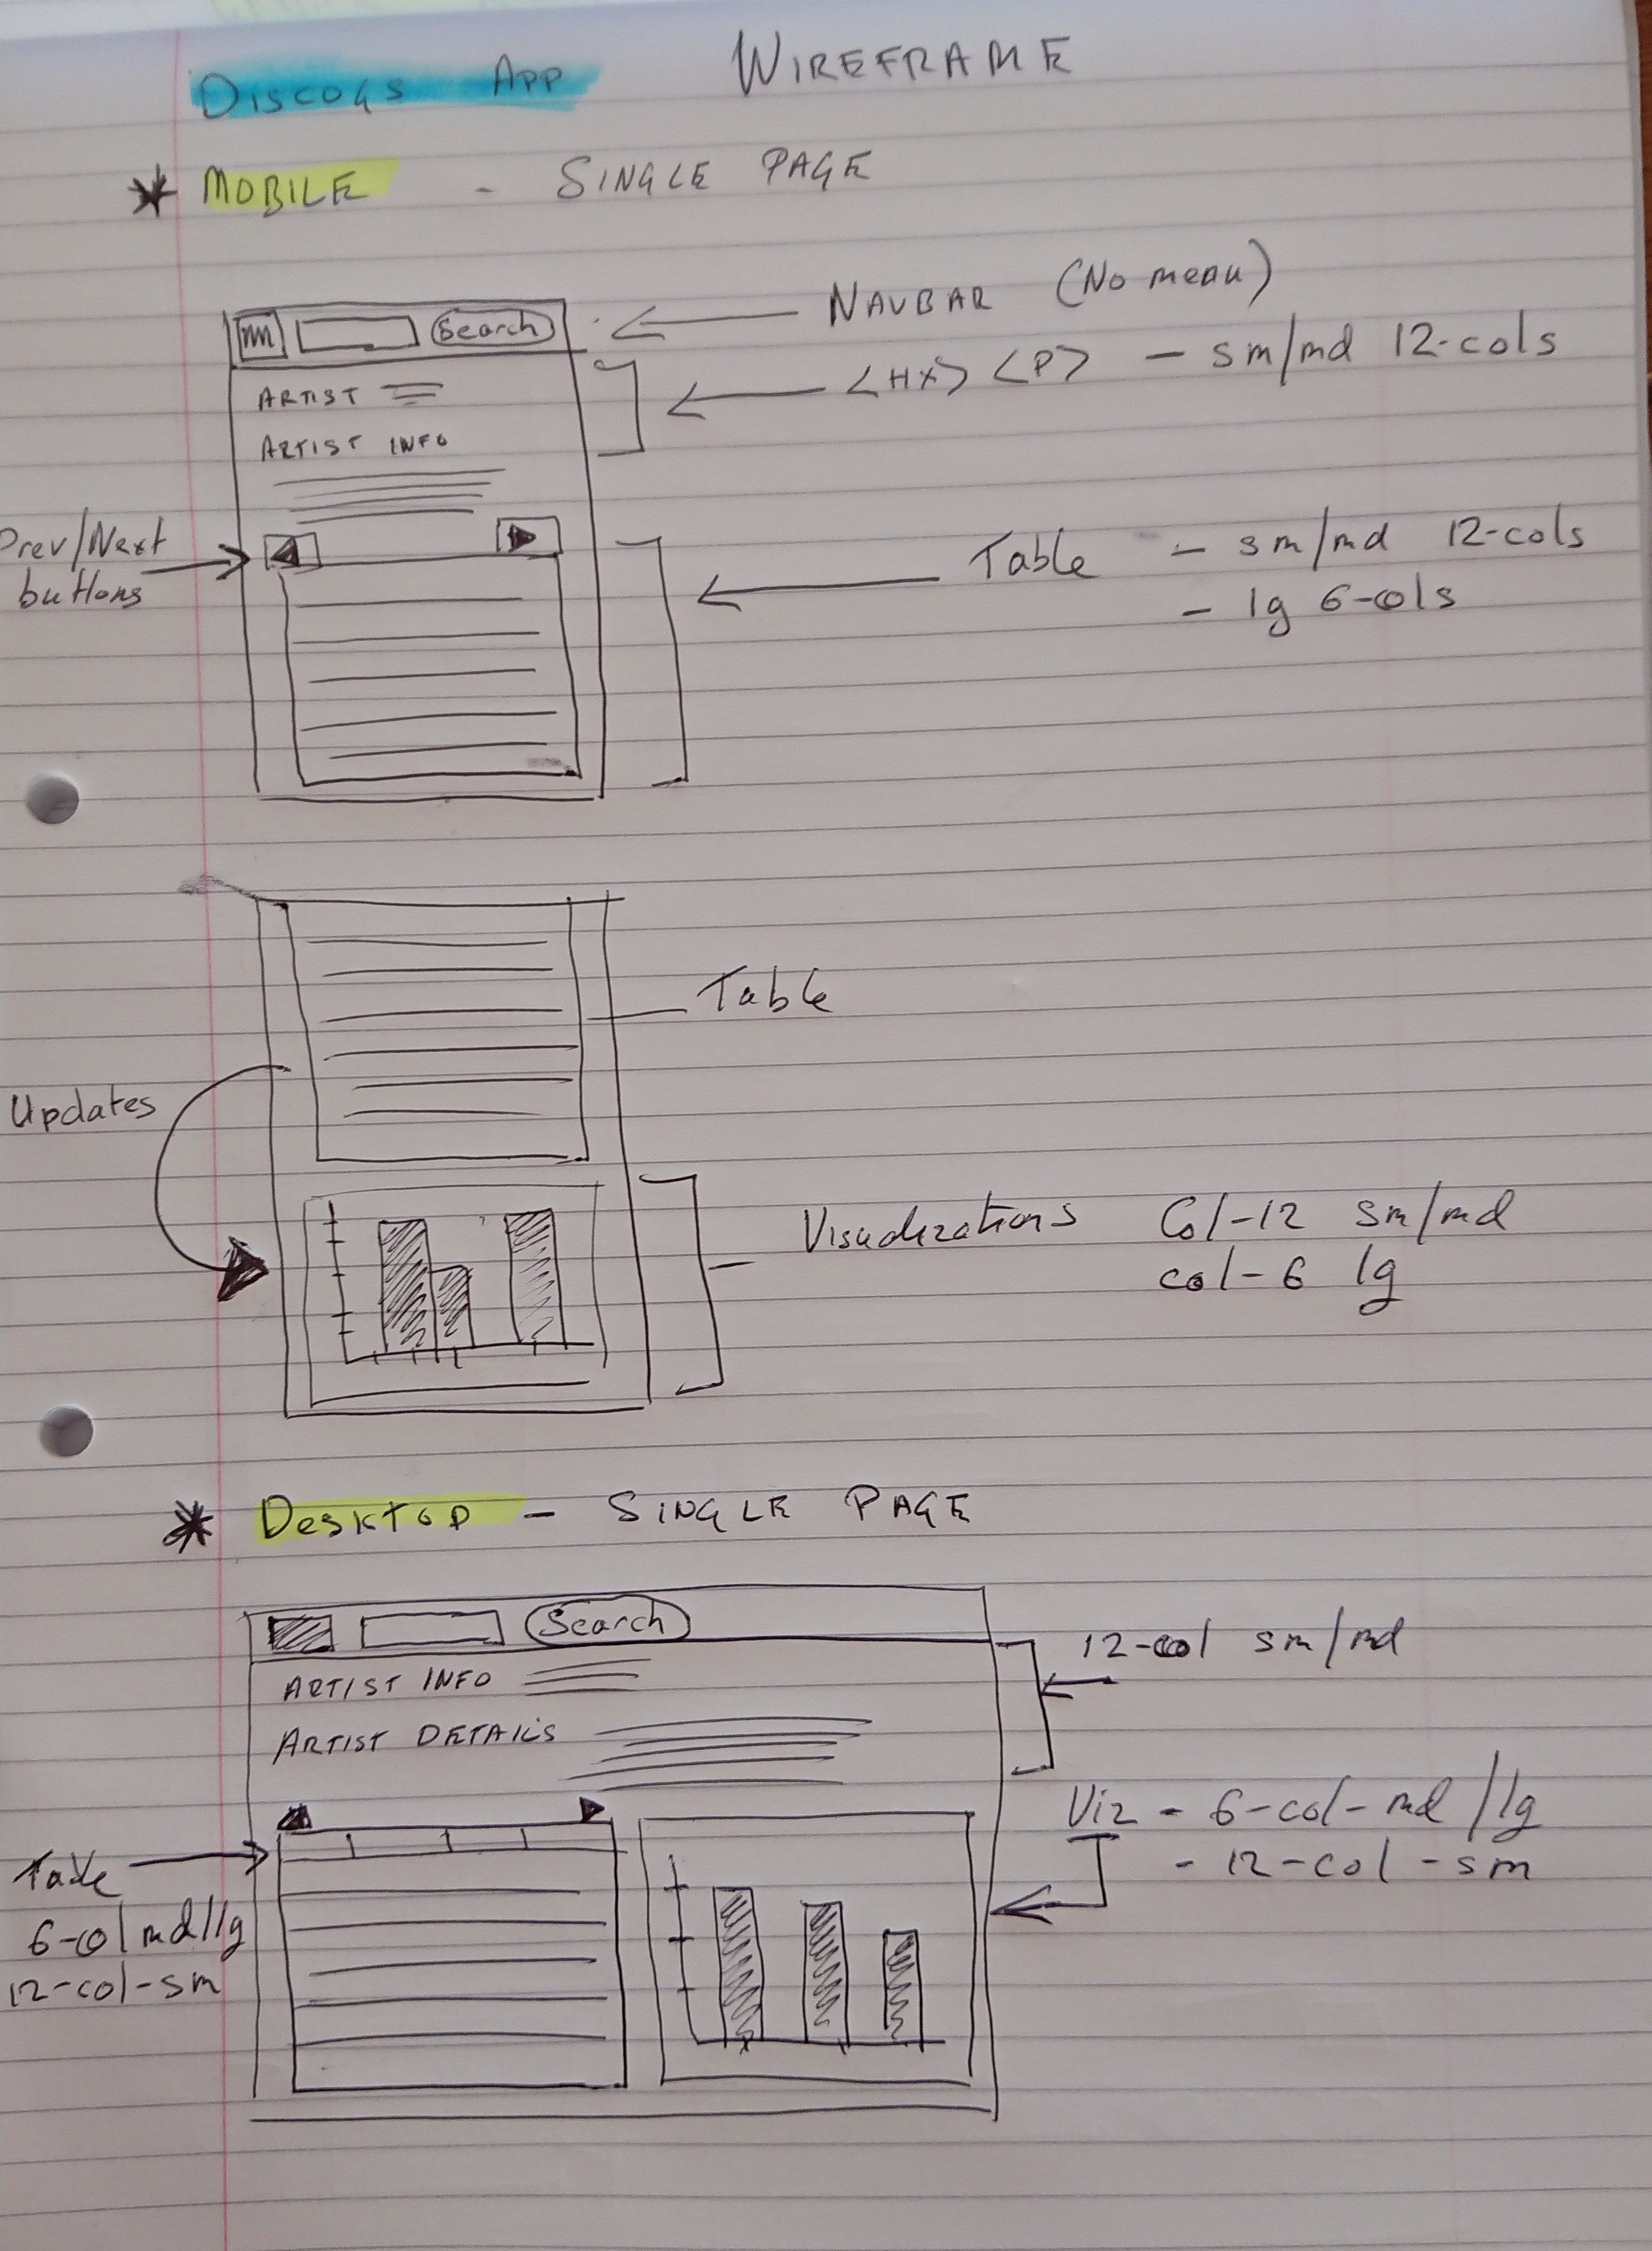 DISCOGS APP WIREFRAME
* MOBILE - SINGLE PAGE
Search
NAVBAR (No menu)
ARTIST
<HX> <P> - sm/md 12-cols
ARTIST INFO
Prev/Next
buttons
Table - sm/md 12-cols
- lg 6-cols
Table
Updates
Visualizations Col-12 sm/md
col-6 lg
* DESKTOP - SINGLE PAGE
Search
12-col sm/md
ARTIST INFO
ARTIST DETAILS
Viz - 6-col-md/lg
- 12-col-sm
Table
6-col md/lg
12-col-sm